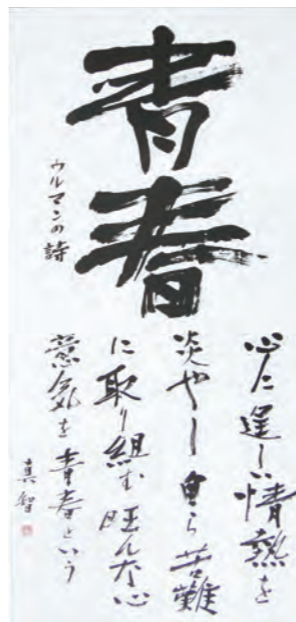 青春
ウルマンの詩
心に逞しい情熱を
炎やし自ら苦難
に取り組む旺んな心
意気を青春という
真智